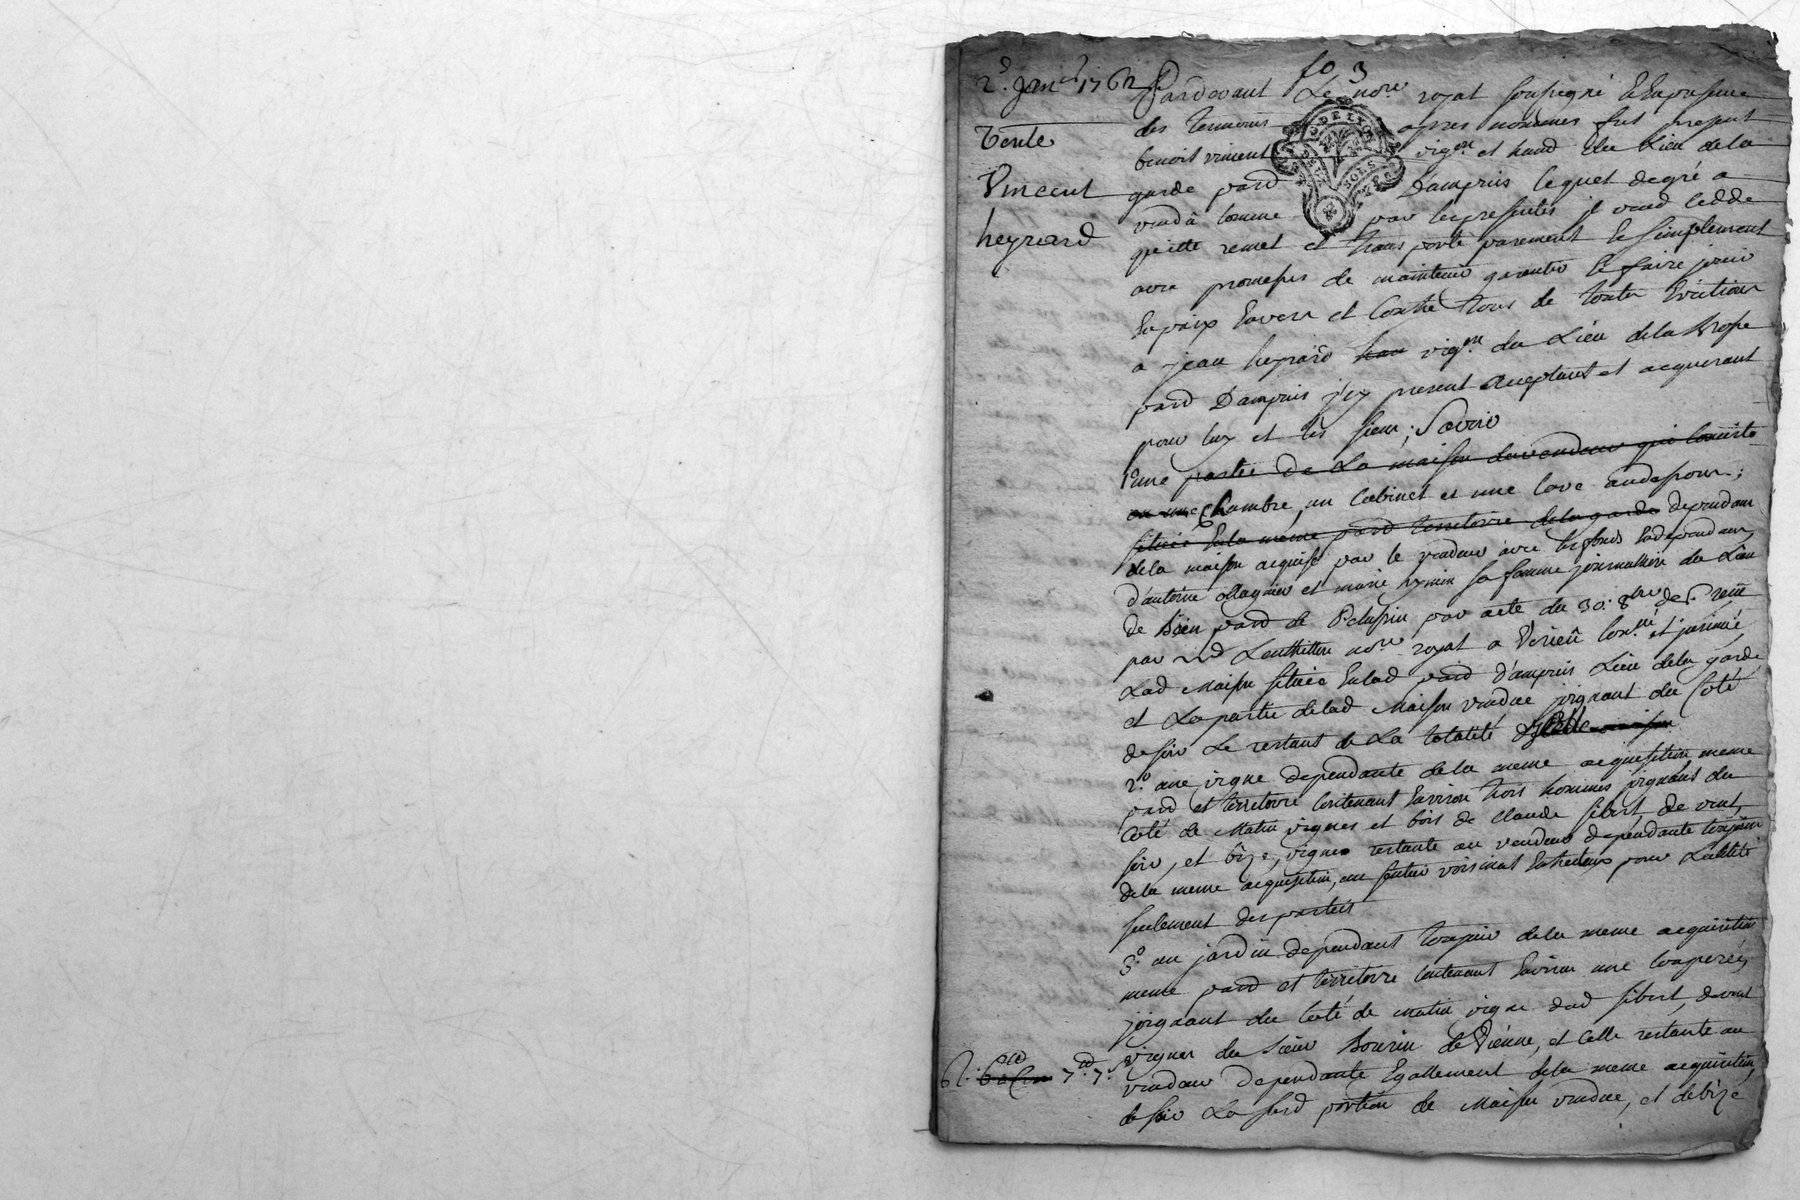 fo 3
2e. Janer 1762
Vente
Vincent
heyrard
Pardevant Le nore royal soussigné Et En presence
des temoins apres nommes fut present
benoit vincent vigon et hand du Lieu de la
garde parr D'ampuis lequel degré a
vendû comme par les presentes il vend cedde
quitte remet et transporte purement et simplement
avec promesses de maintenir garentir et faire jouir
En paix Envers et Contre tous de toutes Evictions
a jean heyrard vigon du Lieu de la Brosse
parr D'ampuis icy present acceptant et acquerant
pour luy et les siens ; Savoir
1° une partie de La maison du vendeur qui consiste
en une Chambre, un Cabinet et une Cave audessous ;
située En la meme parr territoire de la garde dependant
de la maison acquise par le vendeur avec les fonds En dependans
d'antoine et marie sa femme journallier du Lieu
de parr de Pelussin par acte du 30. 8bre der. recu
par nore royal a
Lad Maison située En lad parr D'ampuis Lieu de la garde
et La partie de lad Maison vendue joignant du Coté
de soir Le restant de La totalité
2° une vigne dependante de la meme acquisition meme
parr et territoire Contenant Environ trois hommes joignans du
Coté de Matin vignes et bois de claude sibert, de vent,
soir, et bize, vigne restante au vendeur dependante toujours
de la meme acquisition, un sentier voisinal Entredeux pour L'utilité
seulement des parties
3° un jardin dependant toujours de la meme acquisition
meme parr et territoire Contenant Environ une couperée,
joignant du Coté de Matin vigne dud sibert, de vent
vignes du Sieur Bourin de Vienne, et Celle restante au
vendeur dependante Egallement de la meme acquisition,
de soir La susd portion de Maison vendue, et de bize